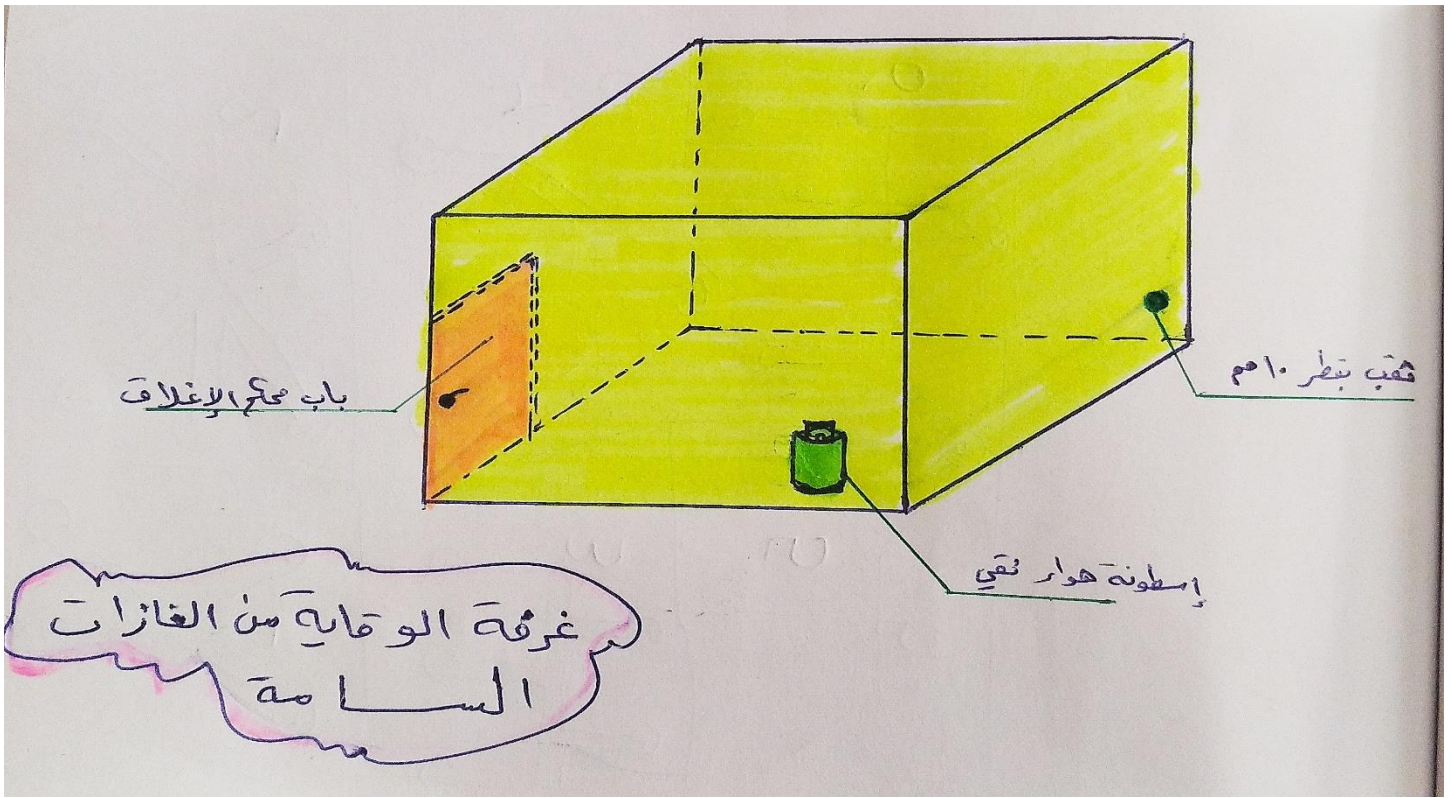 ثقب بقطر ١٠ مم
باب محكم الإغلاق
إسطونة هواء نقي
غرفة الوقاية من الغازات
السامة